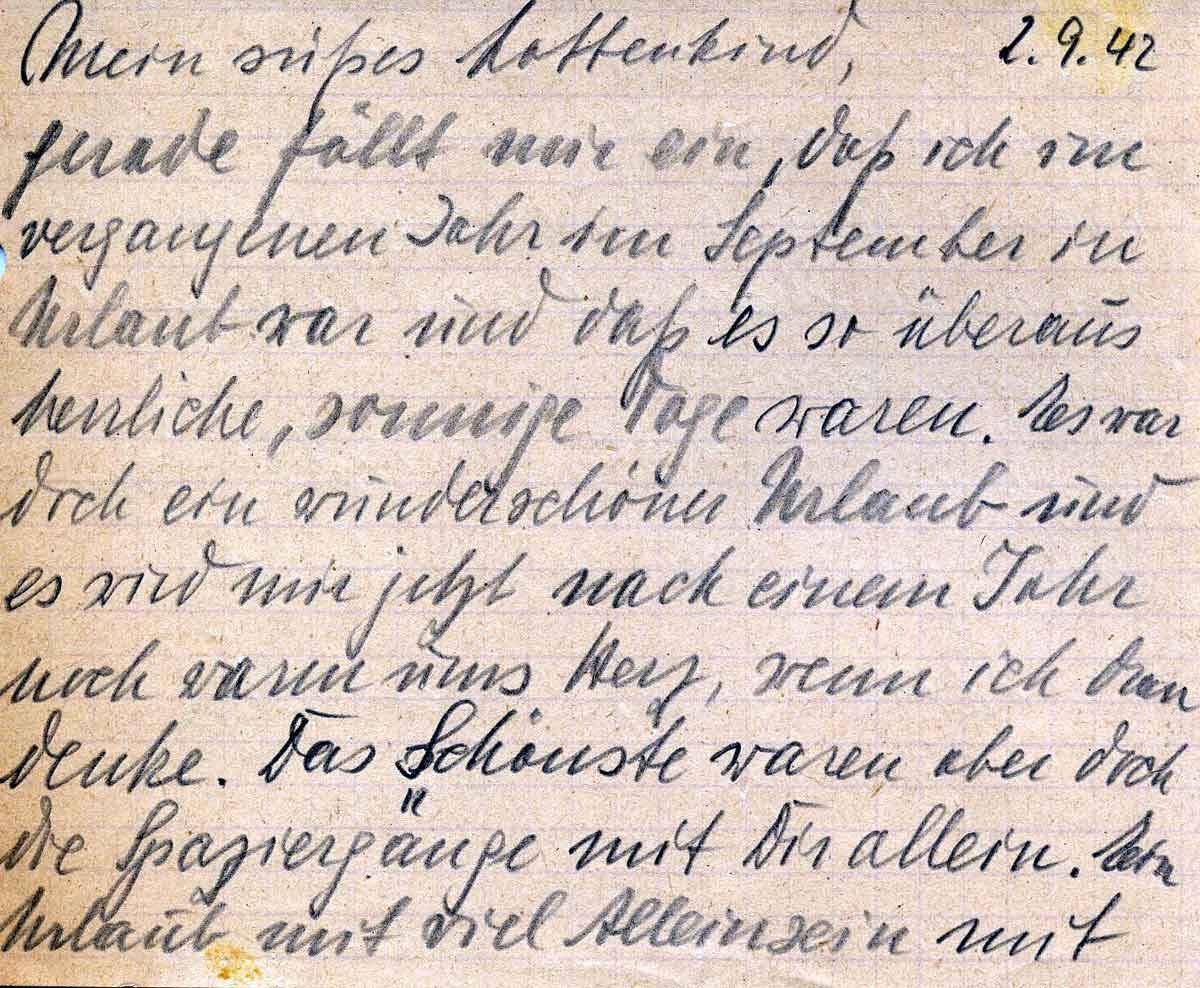 Mein süßes Lottenkind, 2.9.42
gerade fällt mir ein, daß ich im
vergangenen Jahr im September in
Urlaub war und daß es so überaus
herrliche, sonnige Tage waren. Es war
doch ein wunderschöner Urlaub und
es wird mir jetzt nach einem Jahr
noch warm ums Herz, wenn ich dran
denke. Das Schönste waren aber doch
die Spaziergänge mit Dir allein. Ein
Urlaub mit viel Alleinsein mit